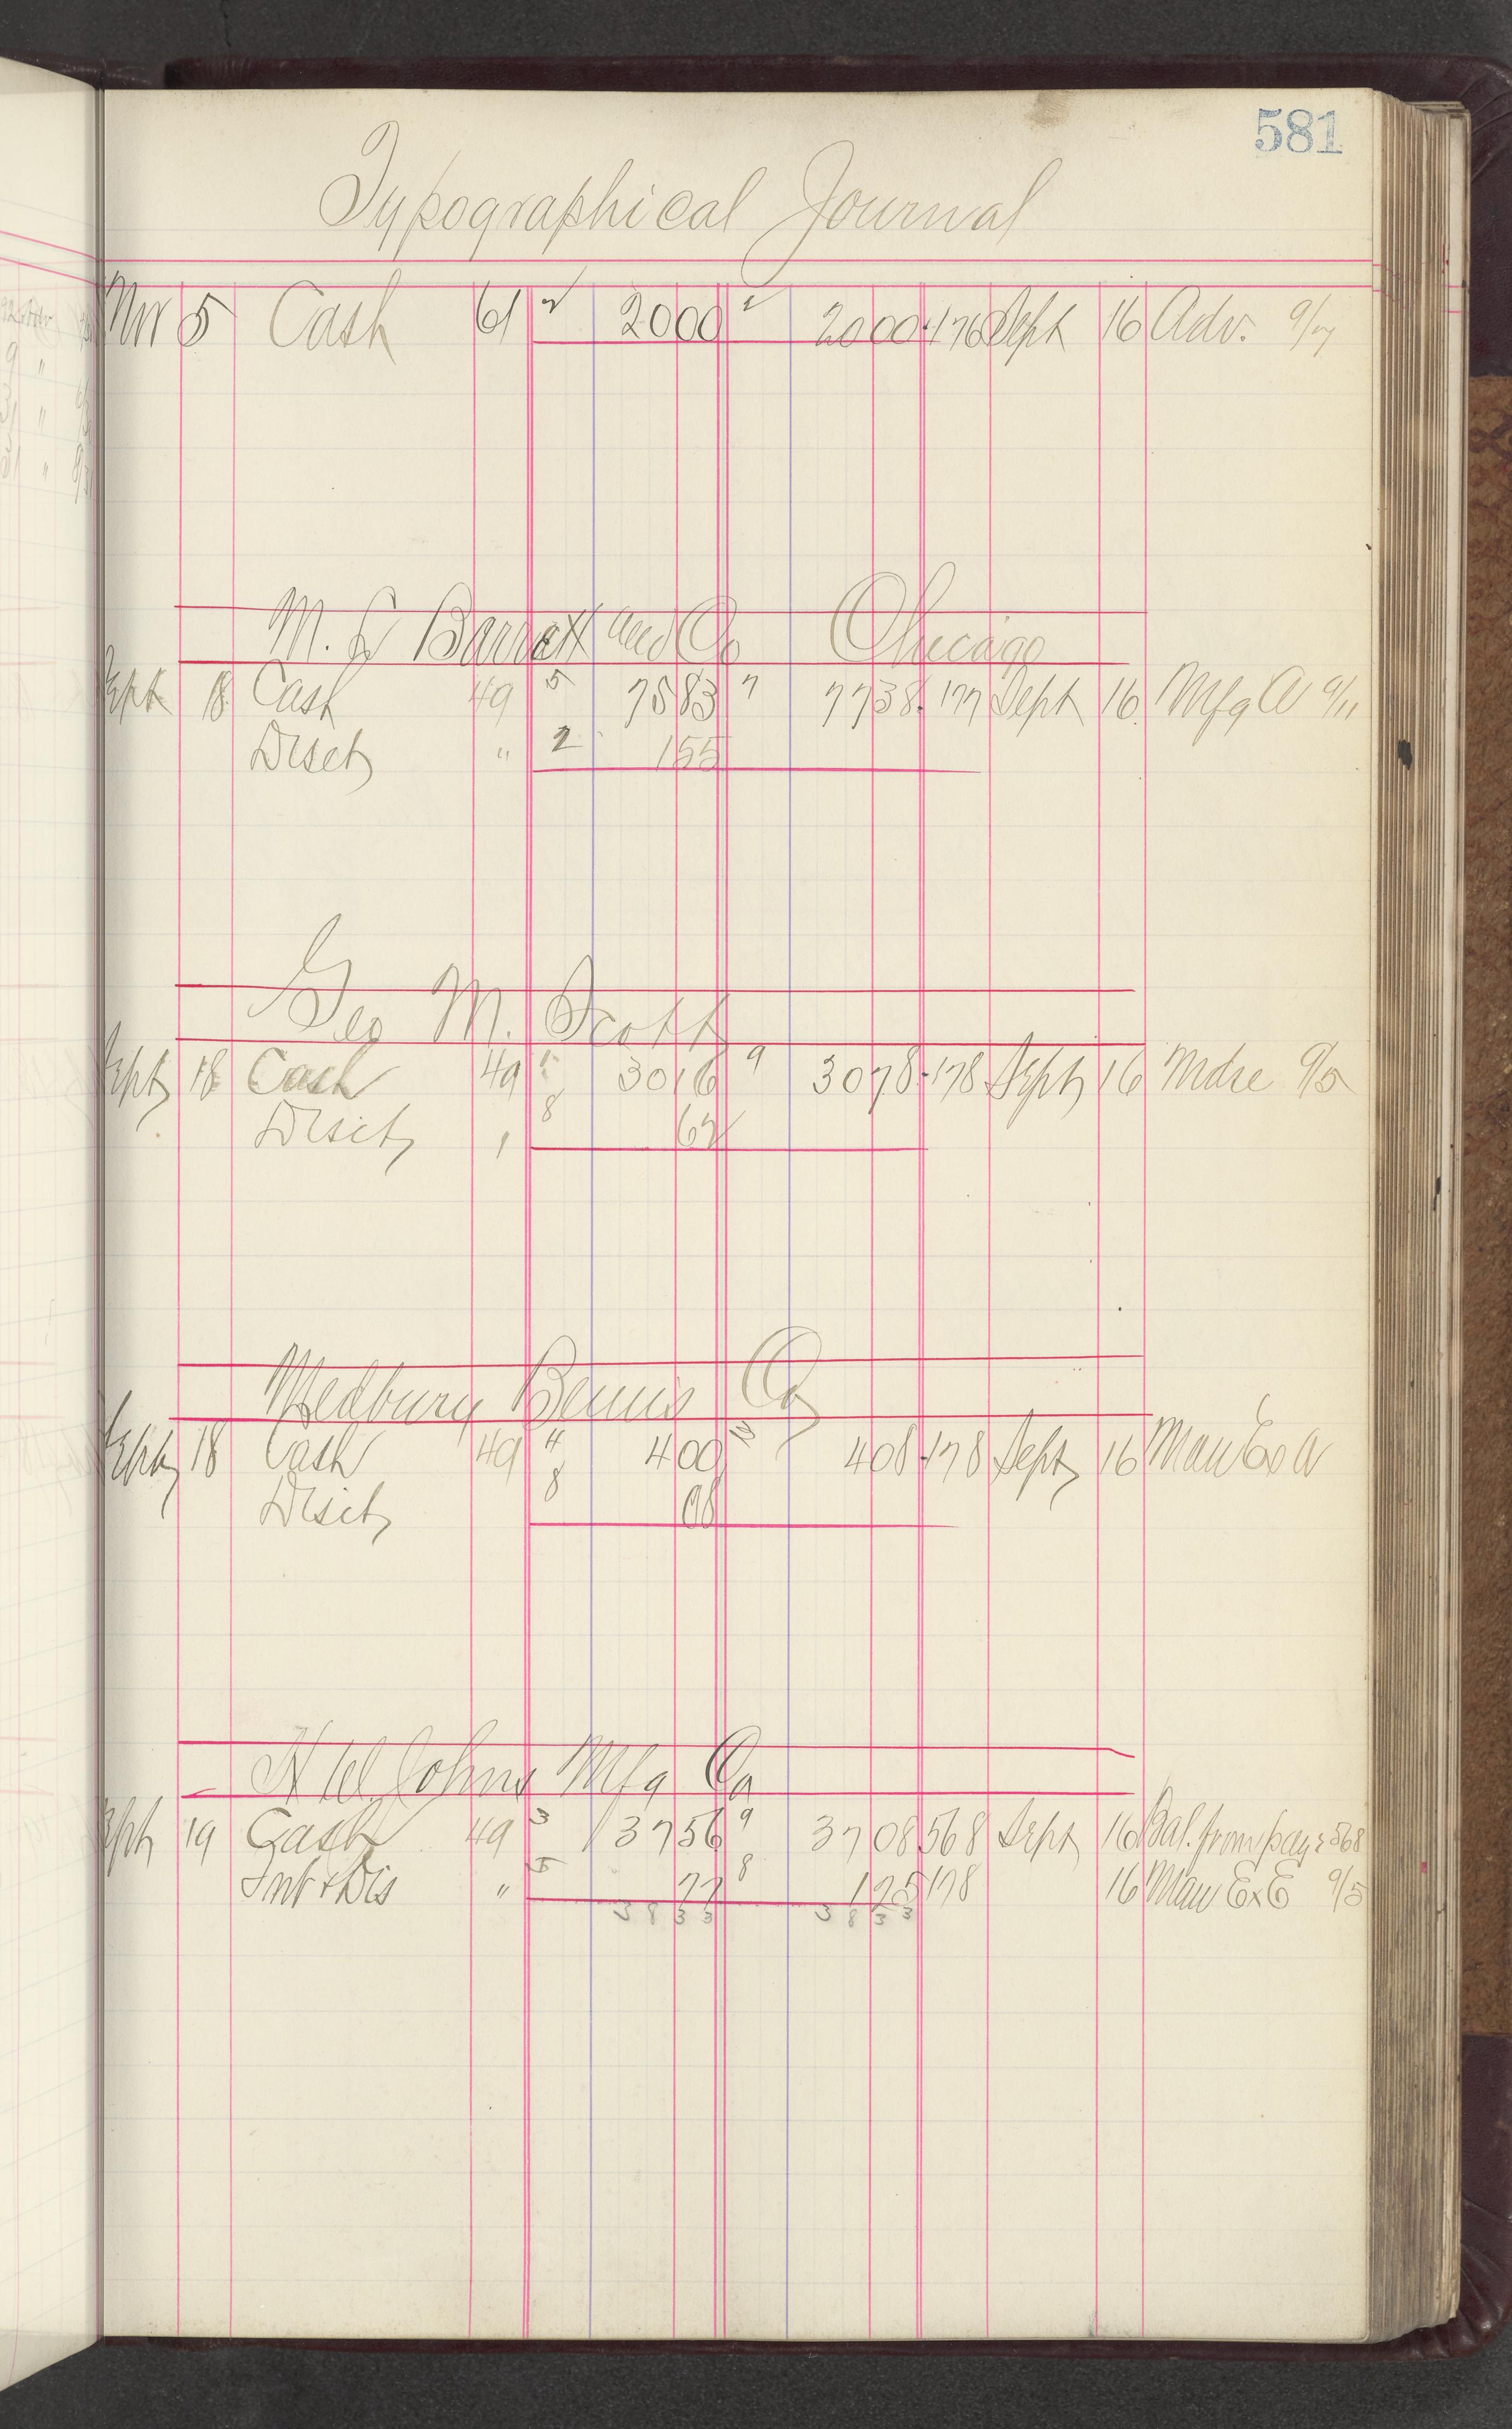 581
Typographical Journal
Nov 5 Cash 61 2 2000 2 2000 176 Sept 16 Adv. 9/7
M. L Barrett and Co Chicago
Sept 18 Cash 49 5 7583 7 7738 177 Sept 16 Mfg A 9/11
Disct " 2 155
Geo M. Scott
Sept 18 Cash 49 3016 9 3078 178 Sept 16 Mdse 9/5
Disct 8 62
Medbury Bemis Co
Sept 18 Cash 49 4 400 408 178 Sept 16 Man Ex A
Disct 8 08
H W Johns Mfg Co
Sept 19 Cash 49 3 3756 9 3708 568 Sept 16 Bal. from page 568
Int & Dis " 5 77 8 125 178 16 Man Ex E 9/5
3833 3833